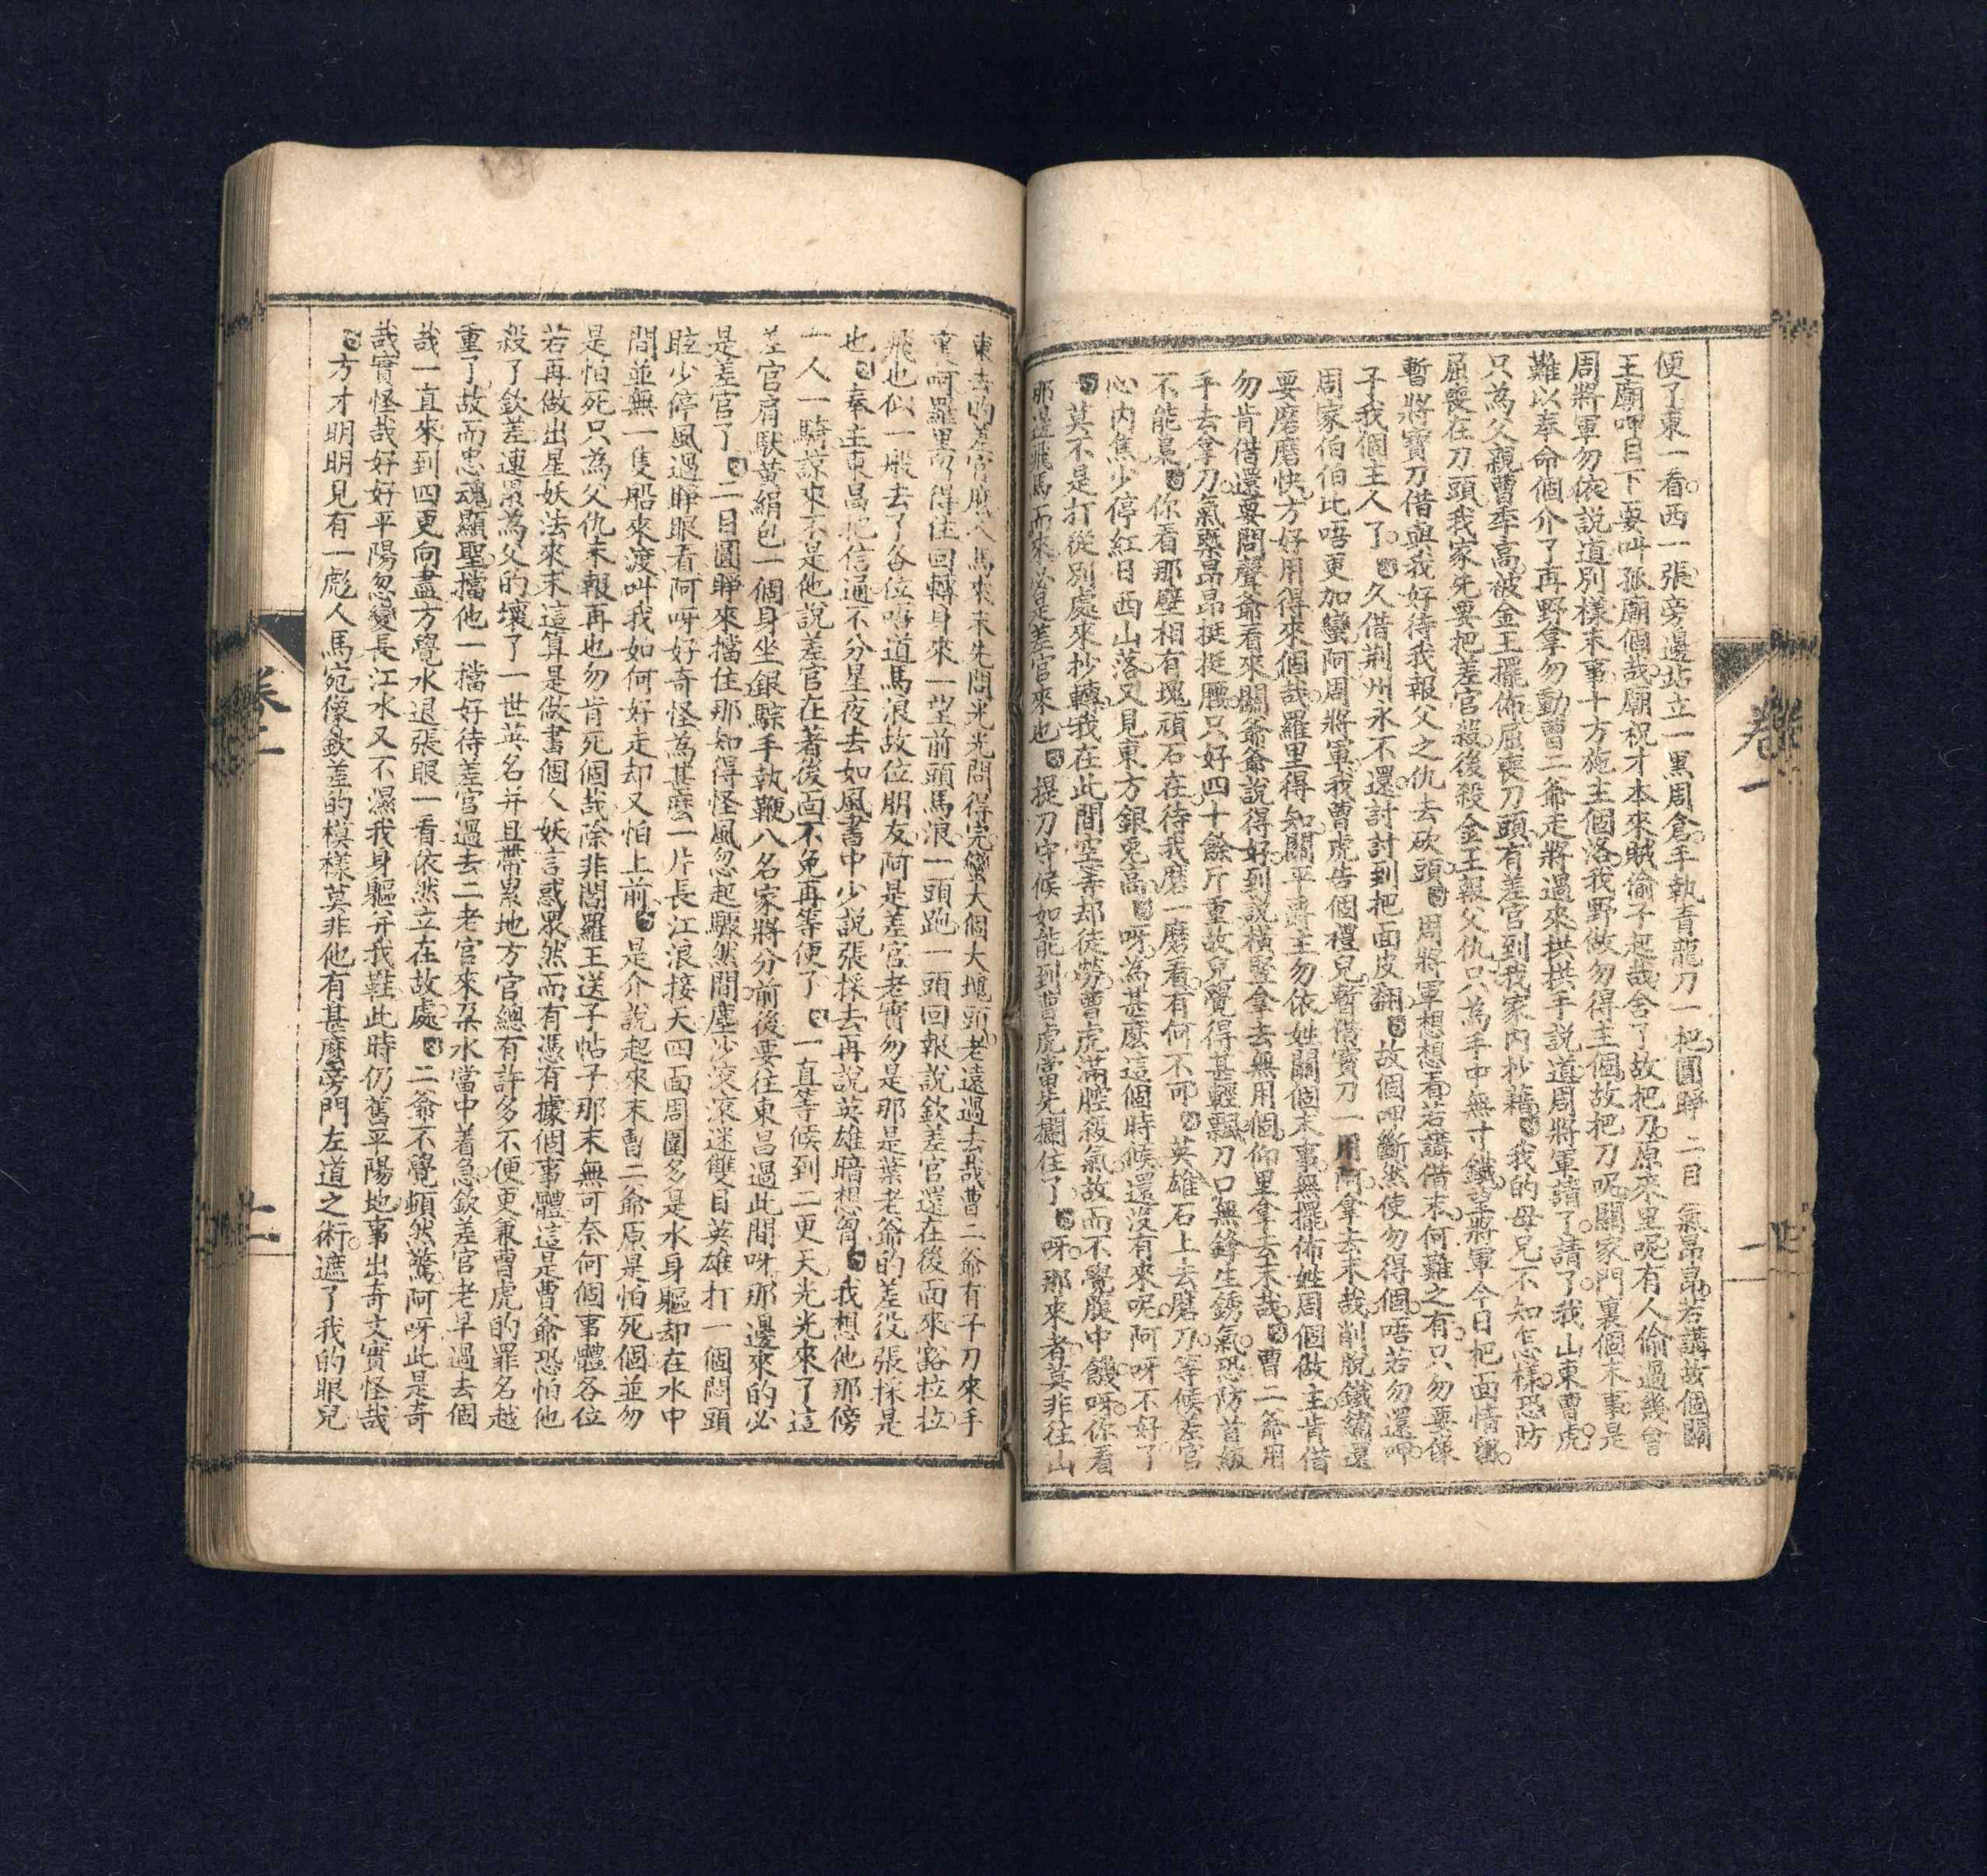 便了東一看西一張旁邊站立一黑周倉手執青龍刀一把圓睜二目氣昂昂若講故個關
王廟呷目下要叫孤廟個哉廟祝才本來賊偷子起哉舍了故把刀原來里呢有人偷過幾會
周將軍勿依說道別樣末事十方施主個洛我野做勿得主個故把刀呢關家門裏個末事是
難以奉命個介了再野拿勿動曹二爺走將過來拱拱手說道周將軍請了請了我山東曹虎
只為父親曹季高被金王擺佈屈喪刀頭有差官到我家內抄藉我的母兄不知怎樣恐防
屈喪在刀頭我家先要把差官殺後殺金王報父仇只為手中無寸鐵望將軍今日把面情留
暫將寶刀借與我好待我報父之仇去砍頭周將軍想想看若講借末何難之有只勿要像
子我個主人了久借荆州永不還討討到把面皮翻故個呷斷然使勿得個唔若勿還呷
周家伯伯比唔更加蠻阿周將軍我曹虎告個禮兒暫借寶刀一用阿拿去末哉削脫鐵鏽還
要磨磨快方好用得來個哉羅里得知關平爵主勿依姓關個末事無擺佈姓周個做主肯借
勿肯借還要問聲爺看來關爺爺說得好到說橫豎拿去無用個仰里拿去末哉曹二爺用
手去拿刀氣槩昂昂挺挺腰只好四十餘斤重故兒覺得甚輕飄刀口無鋒生銹氣恐防首級
不能梟你看那壁相有塊頑石在待我磨一磨看有何不可英雄石上去磨刀等候差官
心內焦少停紅日西山落又見東方銀兎高呀為甚麼這個時候還沒有來呢阿呀不好了
莫不是打從別處來抄轉我在此間空等却徒勞曹虎滿腔殺氣故而不覺腹中饑呀你看
那邊飛馬而來必是差官來也提刀守候如能到曹虎當先攔住了呀那來者莫非往山
東去的差官麽人馬來末先問光光問得完蠻大個大塊頭老遠過去哉曹二爺有子刀來手
裏呵羅里留得住回轉身來一望前頭馬浪一頭跑一頭回報說欽差官還在後面來豁拉拉
飛也似一般去了各位唔道馬浪故位朋友阿是差官老實勿是那是葉老爺的差役張採是
也奉主東昌把信通不分星夜去如風書中少說張採去再說英雄暗想匈我想他那傍
一人一騎諒來不是他說差官在著後面不免再等便了一直等候到二更天光光來了這
差官肩馱黃絹包一個身坐銀騌手執鞭八名家將分前後要往東昌過此間呀那邊來的必
是差官了二目圓睜來擋住那知得怪風忽起驟然間塵沙滚滚迷雙目英雄打一個悶頭
眩少停風過睜眼看阿呀好奇怪為甚麽一片長江浪接天四面周圍多是水身軀却在水中
間並無一隻船來渡叫我如何好走却又怕上前是介說起來末曹二爺原是怕死個並勿
是怕死只為父仇未報再也勿肯死個哉除非閻羅王送子帖子那末無可奈何個事體各位
若再做出星妖法來末這算是做書個人妖言惑眾然而有憑有據個事體這是曹爺恐怕他
殺了欽差連累為父的壞了一世英名并且帶累地方官總有許多不便更兼曹虎的罪名越
重了故而忠魂顯聖擋他一擋好待差官過去二老官來朶水當中着急欽差官老早過去個
哉一直來到四更向盡方覺水退張眼一看依然立在故處二爺不覺頓然驚阿呀此是奇
哉實怪哉好好平陽忽變長江水又不濕我身軀并我鞋此時仍舊平陽地事出奇文實怪哉
方才明明見有一彪人馬宛像欽差的模樣莫非他有甚麼旁門左道之術遮了我的眼兒
卷二
廿
卷二
廿一